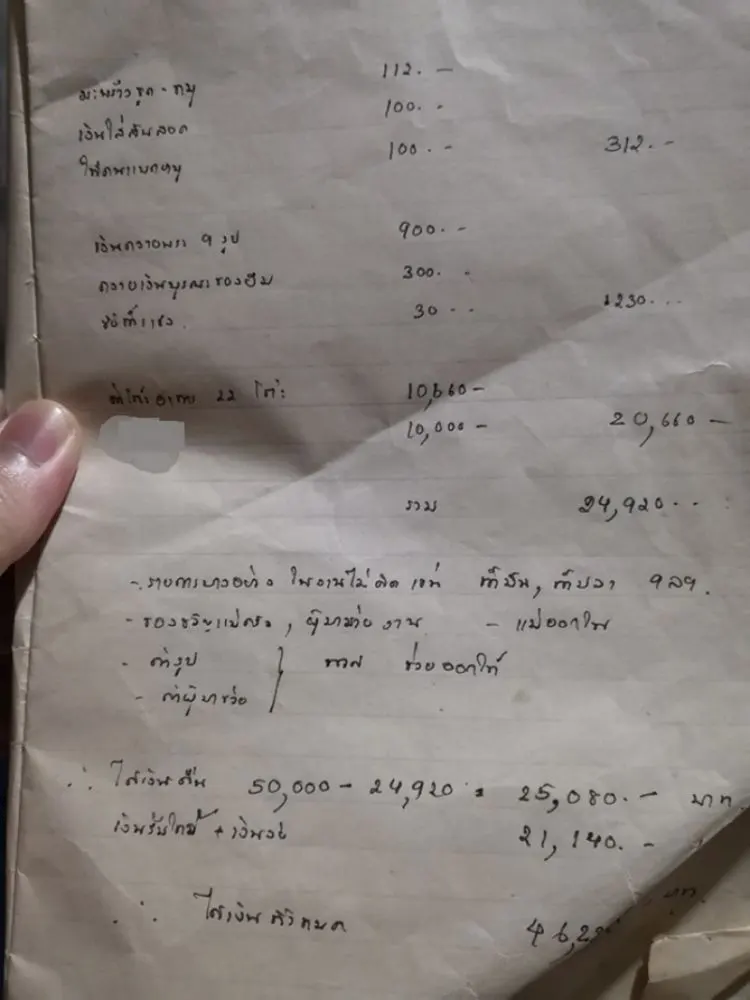 มะพร้าวขูด - หมู 112. -
เงินใส่ขันสอด 100. -
ให้คนแบกหมู 100. - 312. -
เงินถวายพระ 9 รูป 900. -
ถวายเงินบูรณะของยืม 300. -
30 - - 1230. - -
ค่าโต๊ะอาหาร 22 โต๊ะ 10,660 -
10,000 - 20,660 -
รวม 24,920 - -
- รายการบางอย่าง ในงานไม่คิด เช่น ค่า , ค่าปลา ฯลฯ.
- ของขวัญแม่ครัว, ผู้มาช่วยงาน - แม่ออกให้
- ค่ารูป ช่วยออกให้
- ค่าผู้มาช่วย
∴ ได้เงินคืน 50,000 - 24,920 = 25,080. - บาท.
เงินรับไหว้ + เงินช่วย 21,140. -
∴ ได้เงินทั้งหมด บาท.